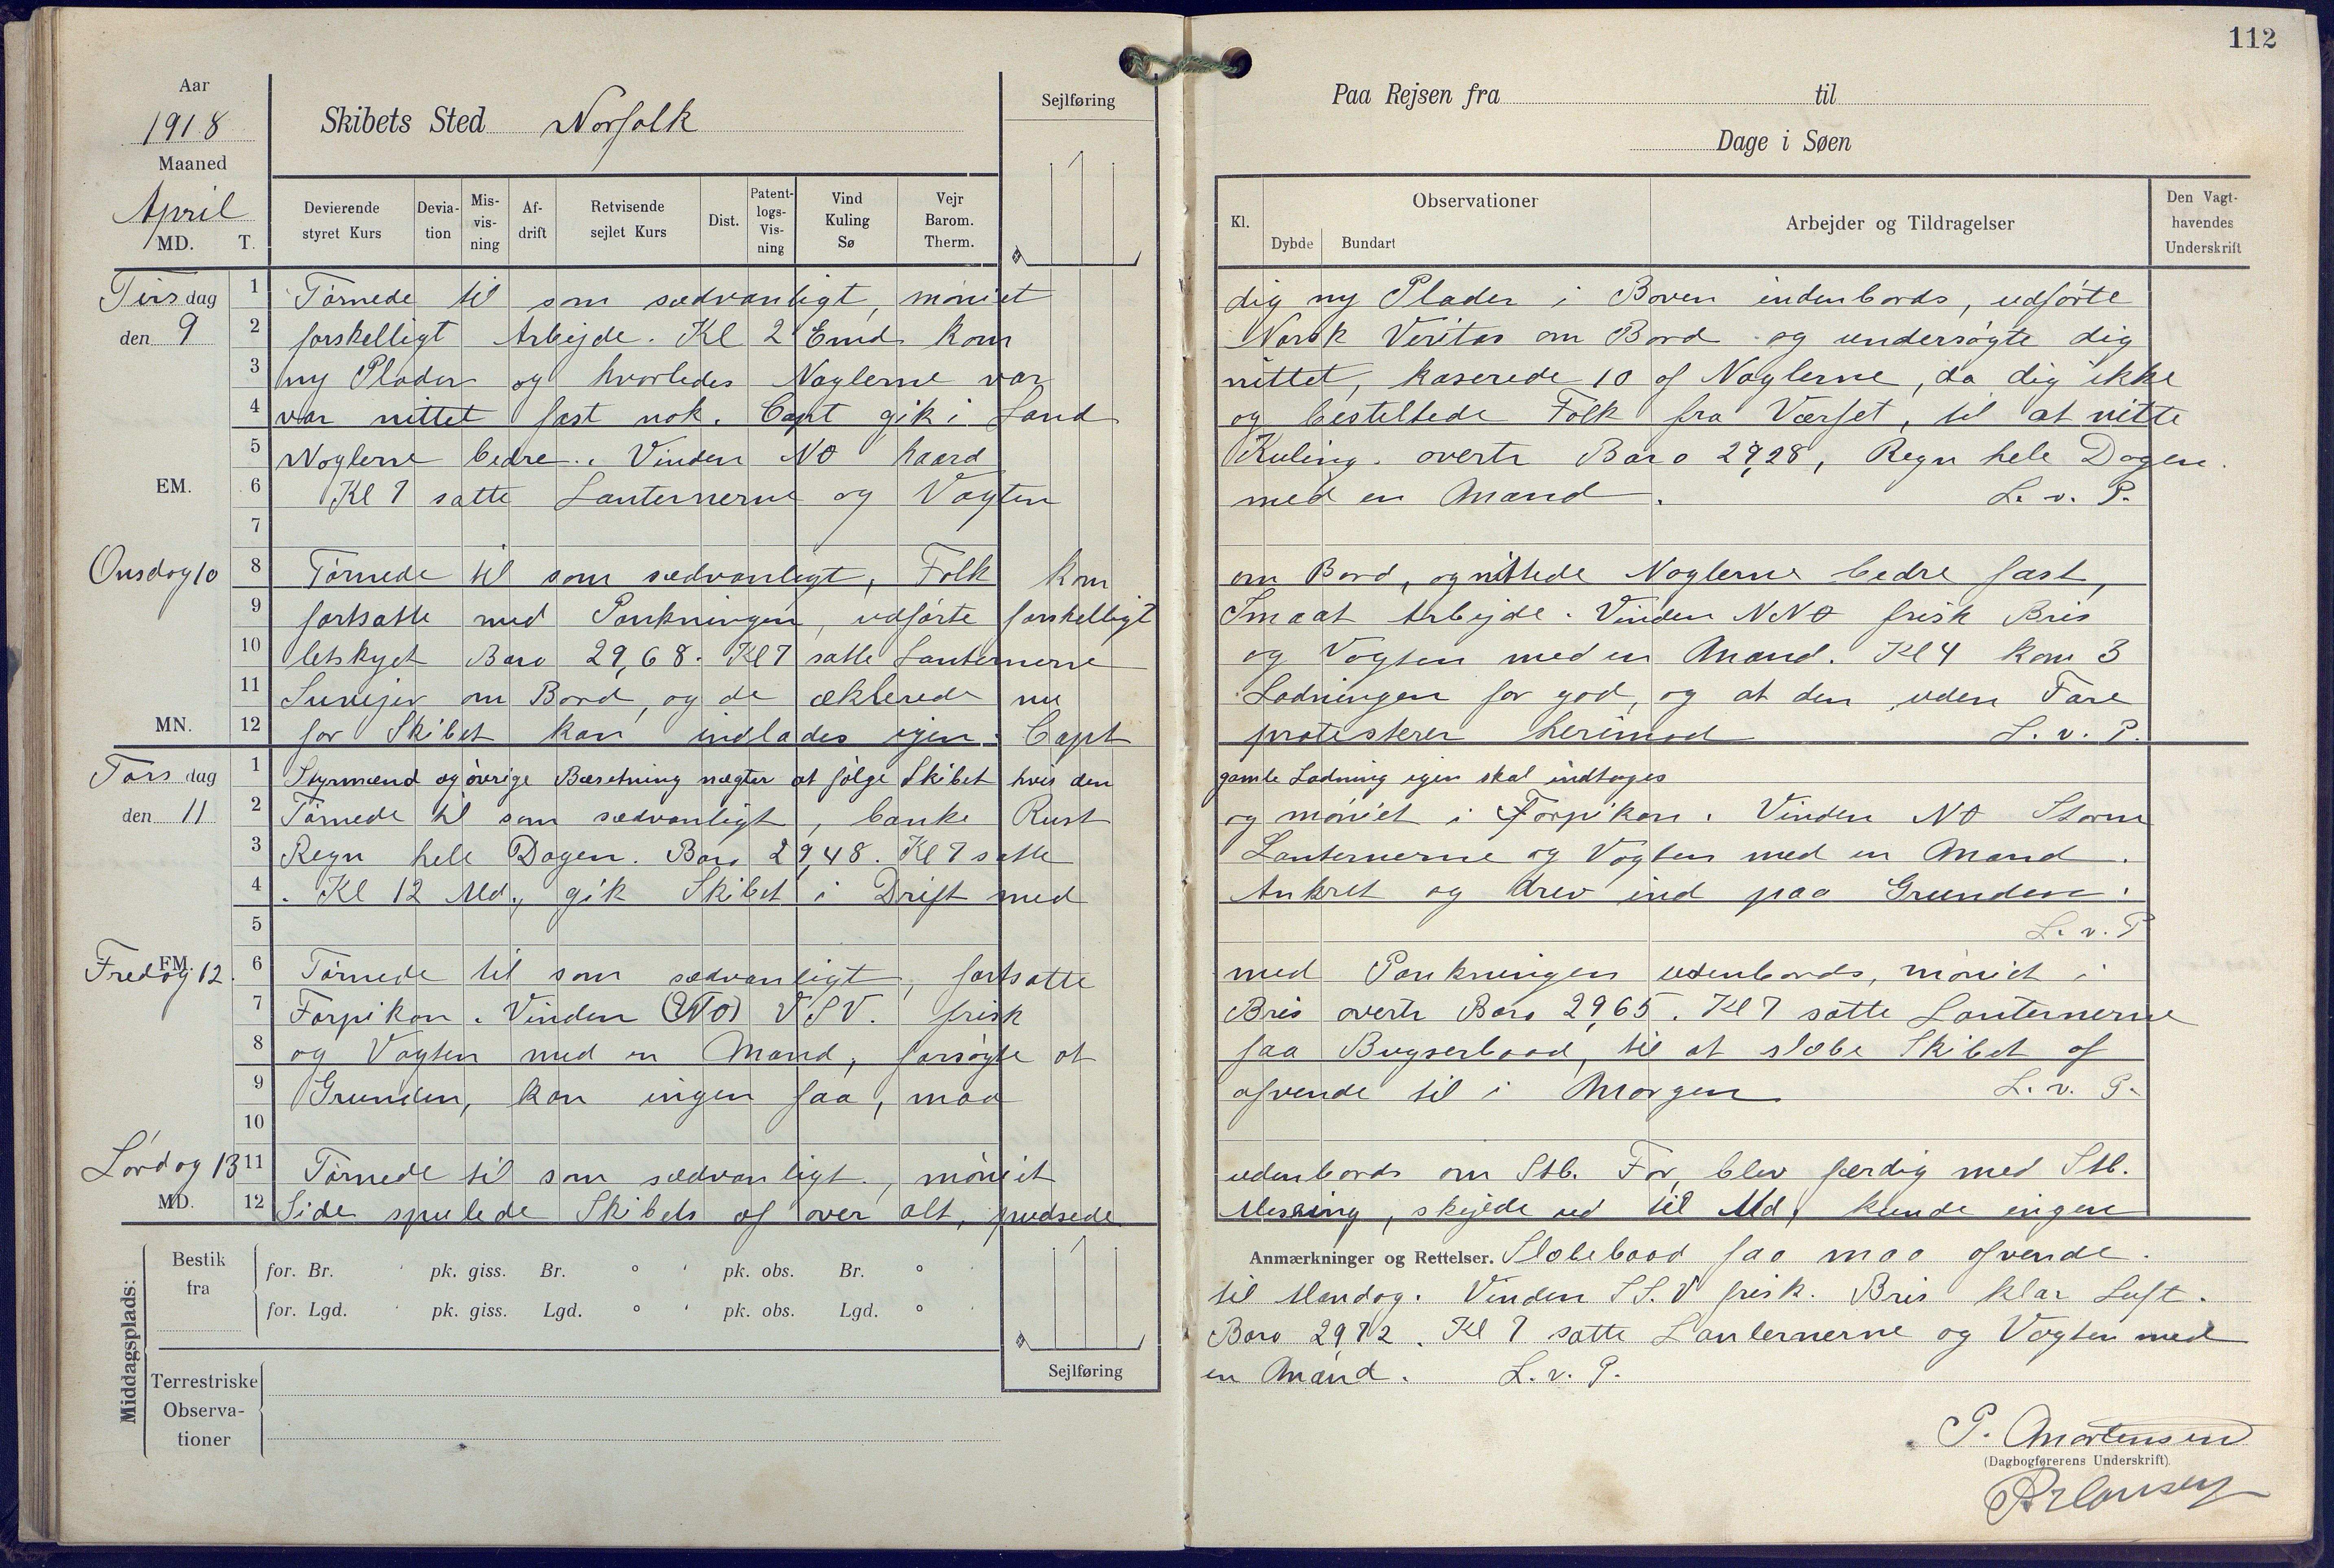 112
Aar
1918
Maaned
April
MD. T.
Skibets Sted Norfolk
Sejlføring
Paa Rejsen fra til
Dage i Søen
Devierende styret Kurs
Deviation
Misvisning
Afdrift
Retvisende sejlet Kurs
Dist.
Patentlogs-Visning
Vind Kuling Sø
Vejr Barom. Therm.
Kl.
Observationer
Dybde Bundart
Arbejder og Tildragelser
Den Vagthavendes Underskrift
Tirsdag den 9
1 Törnede til som sædvanligt, möniet dig ny Plader i Boven indenbords, udförte
2 forskelligt Arbejde. Kl 2 Emd. kom Norsk Veritas om Bord og undersögte dig
3 ny Plader og hvorledes Naglerne var nittet, kaserede 10 af Naglerne, da dig ikke
4 var nittet fast nok. Capt gik i Land og bestellede Folk fra Værfet, til at nitte
5 Naglerne bedre. Vinden NO haard Kuling. overtr Baro 29,28, Regn hele Dagen.
EM. 6 Kl 7 satte Lanternerne og Vagten med en Mand. L. v. P.
7
Onsdag 10
8 Törnede til som sædvanligt, Folk kom om Bord, og nittede Naglerne bedre fast,
9 fortsatte med Pankningen, udförte forskelligt Smaat Arbejde. Vinden NNO frisk Bris
10 letskyet Baro 29,68. Kl 7 satte Lanternerne og Vagten med en Mand. Kl 4 kom 3
11 Suvejer om Bord, og de æklerede nu Ladningen for god, og at den uden Fare
MN. 12 for Skibet kan indlades igen. Capt protesterer herimod L. v. P.
Torsdag den 11
1 Styrmænd og övrige Bæsetning nægter at fölge Skibet hvis den gamle Ladning igen skal indtages
2 Törnede til som sædvanligt, banke Rust og möniet i Forpikan. Vinden NO Storm
3 Regn hele Dagen. Baro 29,48. Kl 7 satte Lanternerne og Vagten med en Mand.
4 . Kl 12 Md., gik Skibet i Drift med Ankret og drev ind paa Grunden.
5 L. v. P
Fredag 12.
EM. 6 Törnede til som sædvanligt, fortsatte med Pankningen udenbords, möniet i
7 Forpikan. Vinden (NO) VSV. frisk Bris overtr Baro 29,65. Kl 7 satte Lanternerne
8 og Vagten med en Mand, forsögte at faa Bugserbaad, til at slæbe Skibet af
9 Grunden, kan ingen faa, maa afvende til i Morgen L. v. P.
10
Lördag 13
11 Törnede til som sædvanligt, möniet udenbords om Stb. For, blev færdig med Stb.
MD. 12 Side spulede Skibets af over alt, pudsede Messing, skejede ud til Md, kunde ingen
Middagsplads:
Bestik fra
for. Br. ' pk. giss. Br. ° ' pk. obs. Br. ° '
for. Lgd. ' pk. giss. Lgd. ° ' pk. obs. Lgd. ° '
Sejlføring
Terrestriske Observationer
Anmærkninger og Rettelser. Slæbebaad faa maa afvende.
til Mandag. Vinden SS.V frisk. Bris klar Luft.
Baro 29,72. Kl 7 satte Lanternerne og Vagten med
en Mand. L. v. P.
P. Mortensen
(Dagbogførerens Underskrift)